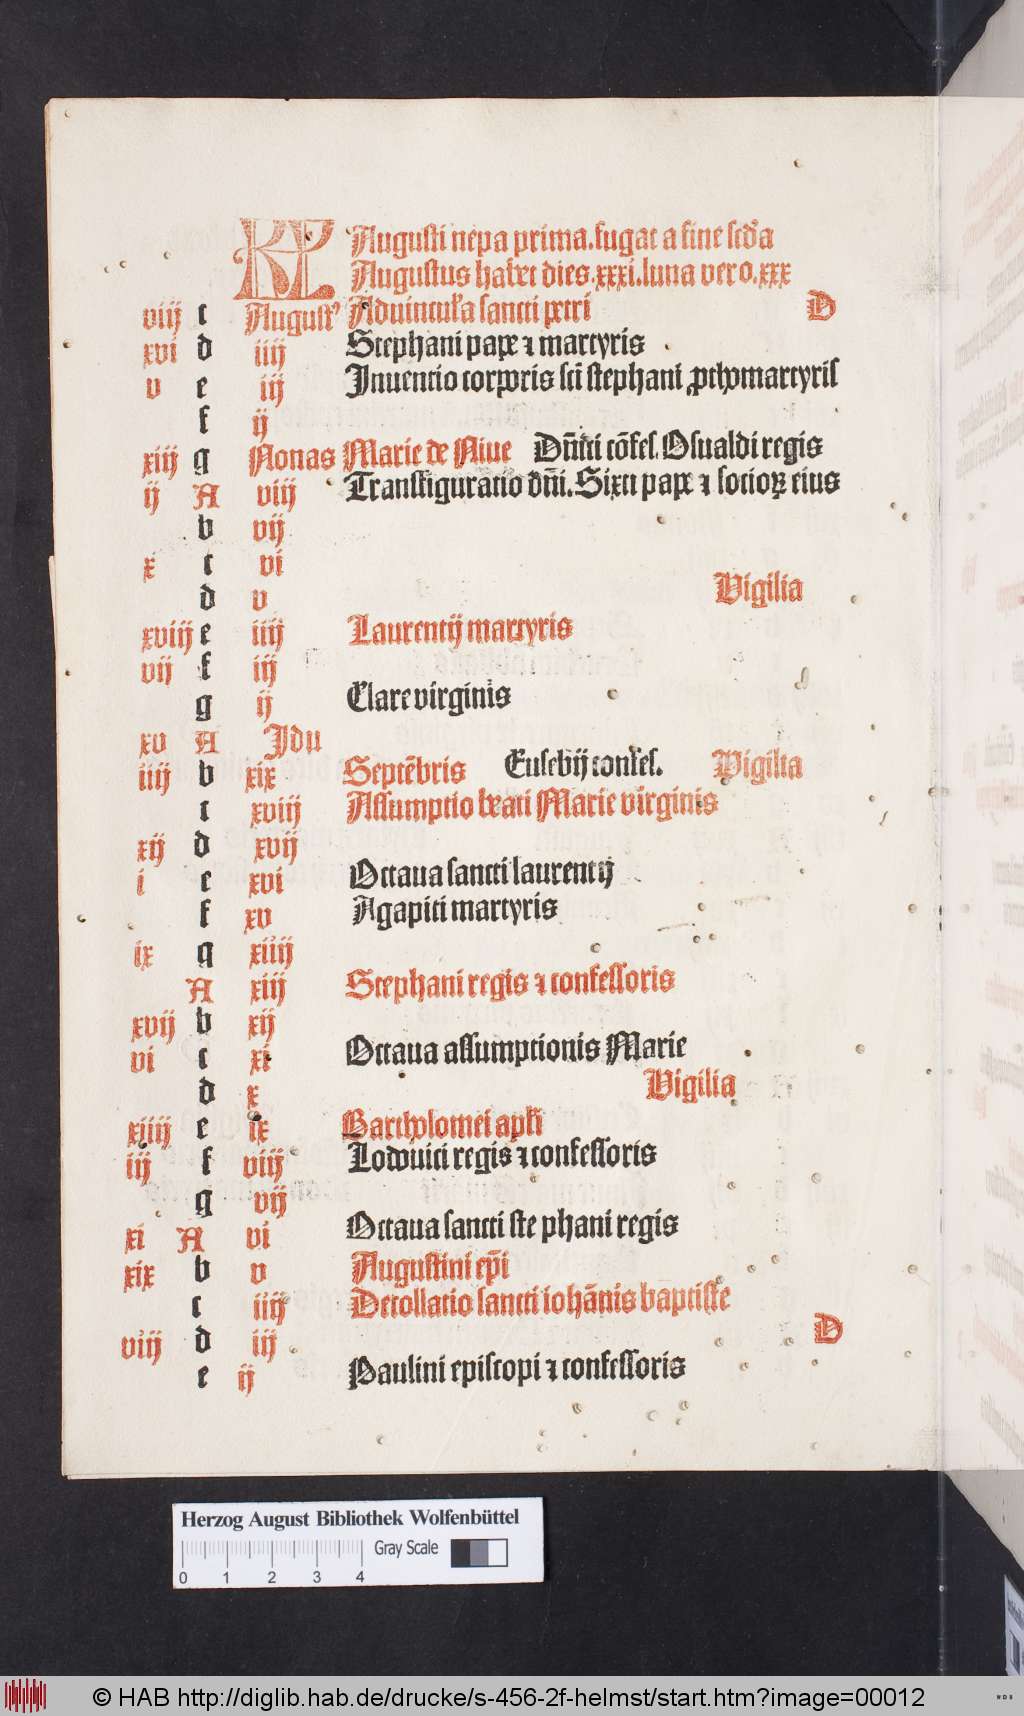 KL Augusti nepa prima. fugat a fine scďa
Augustus habet dies. xxxi. luna vero. xxx
viij c Augustꝰ Aduincula sancti petri D
xvi d iiij Stephani pape ⁊ martyris
v e iij Inuentio corporis scī stephani ꝓthomartyris
f ij
xiij g Nonas Marie de Niue Dn̄ici cōfes. Osualdi regis
ij A viij Transfiguratio dn̄i. Sixti pape ⁊ socioꝝ eius
b vij
x c vi
d v Vigilia
xviij e iiij Laurentij martyris
vij f iij
g ij Clare virginis
xv A Idu
iiij b xix Septēbris Eusebij confes. Vigilia
c xviij Assumptio beati Marie virginis
xij d xvij
i e xvi Octaua sancti laurentij
f xv Agapiti martyris
ix g xiiij
A xiij Stephani regis ⁊ confessoris
xvij b xij
vi c xi Octaua assumptionis Marie
d x Vigilia
xiiij e ix Bartholomei apl̄i
iij f viij Lodouici regis ⁊ confessoris
g vij
xi A vi Octaua sancti ste phani regis
xix b v Augustini ep̄i
c iiij Decollatio sancti iohānis baptiste
viij d iij D
e ij Paulini episcopi ⁊ confessoris
Herzog August Bibliothek Wolfenbüttel
Gray Scale
0 1 2 3 4
© HAB http://diglib.hab.de/drucke/s-456-2f-helmst/start.htm?image=00012